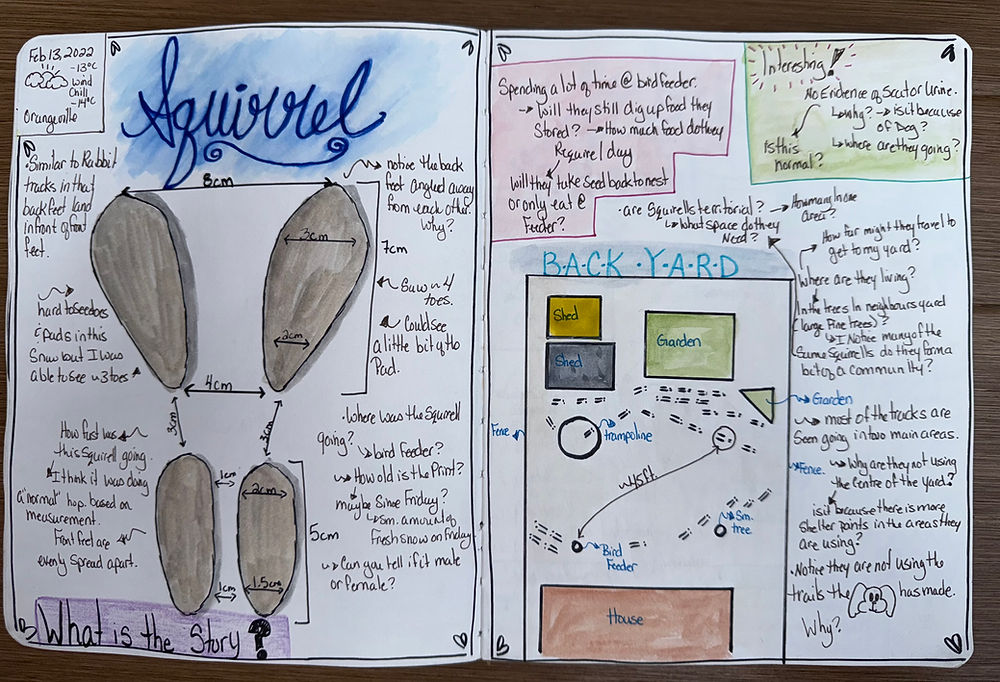 Feb 13, 2022
-13°C
Wind
Chill
-14°C
Orangeville
Squirrel
• Similar to Rabbit
tracks in that
back feet land
in front of front
feet.
8cm
notice the back
feet angled away
from each other.
Why?
3cm
7cm
2cm
Saw ~4
toes.
Could see
a little bit of the
Pad.
hard to see toes
& pads in this
Snow but I was
able to see ~3 toes
4cm
3cm
3cm
How fast was
this Squirrel going.
I think it was doing
a "normal" hop. based on
measurement.
Front feet are
evenly spread apart.
1cm
2cm
5cm
1cm
1.5cm
• Where was the Squirrel
going?
bird feeder?
How old is the Print?
maybe Since Friday?
Sm. amount of
Fresh snow on Friday
Can you tell if it male
or female?
What is the Story?
Spending a lot of time @ bird feeder.
→ Will they still dig up food they
Stored? → How much food do they
Require / day
Will they take seed back to nest
or only eat @
Feeder?
Interesting!
No Evidence of Scat or Urine.
Why? → is it because
of Dog?
Is this
normal?
Where are they going?
• are Squirells territorial? → How many in one
area?
What space do they
Need?
How far might they travel to
get to my yard?
Where are they living?
In the trees In neighbours yard
(large Pine trees)?
I Notice many of the
Same Squirells do they form a
bit of a community?
BACK • YARD
Shed
Shed
Garden
Garden
Fence
trampoline
Fence.
~45ft.
Sm.
tree.
Bird
Feeder
House
most of the tracks are
Seen going in two main areas.
Why are they not using
the Centre of the yard?
is it because there is more
Shelter points in the areas they
are using?
• Notice they are not using the
trails the has made.
Why?